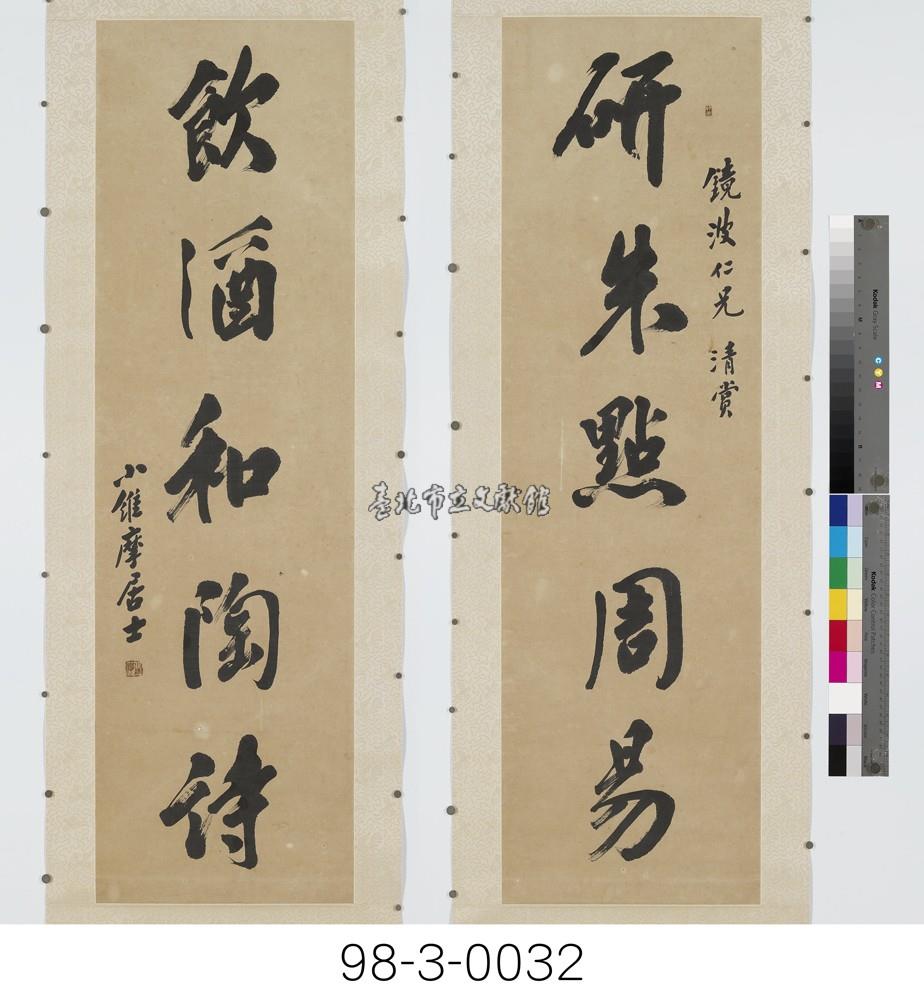 鏡波仁兄 清賞
研朱點周易
飲酒和陶詩
小維摩居士
臺北市立文獻館
Kodak Gray Scale
C Y M
Kodak Color Control Patches
98-3-0032